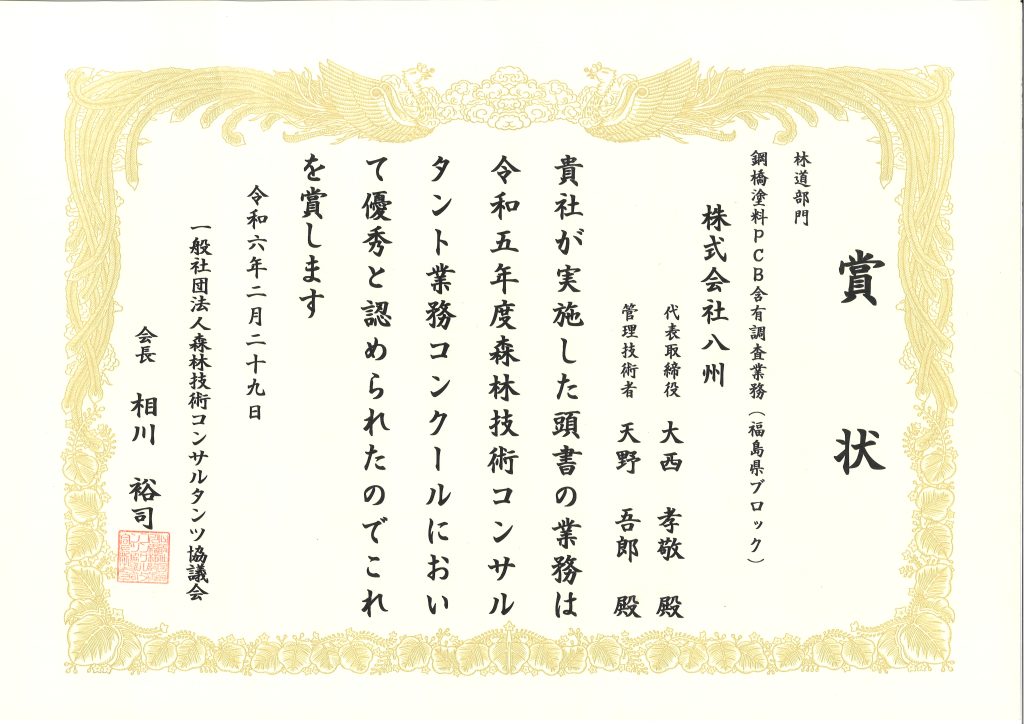 賞状
林道部門
鋼橋塗料PCB含有調査業務（福島県ブロック）
株式会社八州
代表取締役 大西 孝敬 殿
管理技術者 天野 吾郎 殿
貴社が実施した頭書の業務は
令和五年度森林技術コンサル
タント業務コンクールにおい
て優秀と認められたのでこれ
を賞します
令和六年二月二十九日
一般社団法人森林技術コンサルタンツ協議会
会長 相川 裕司